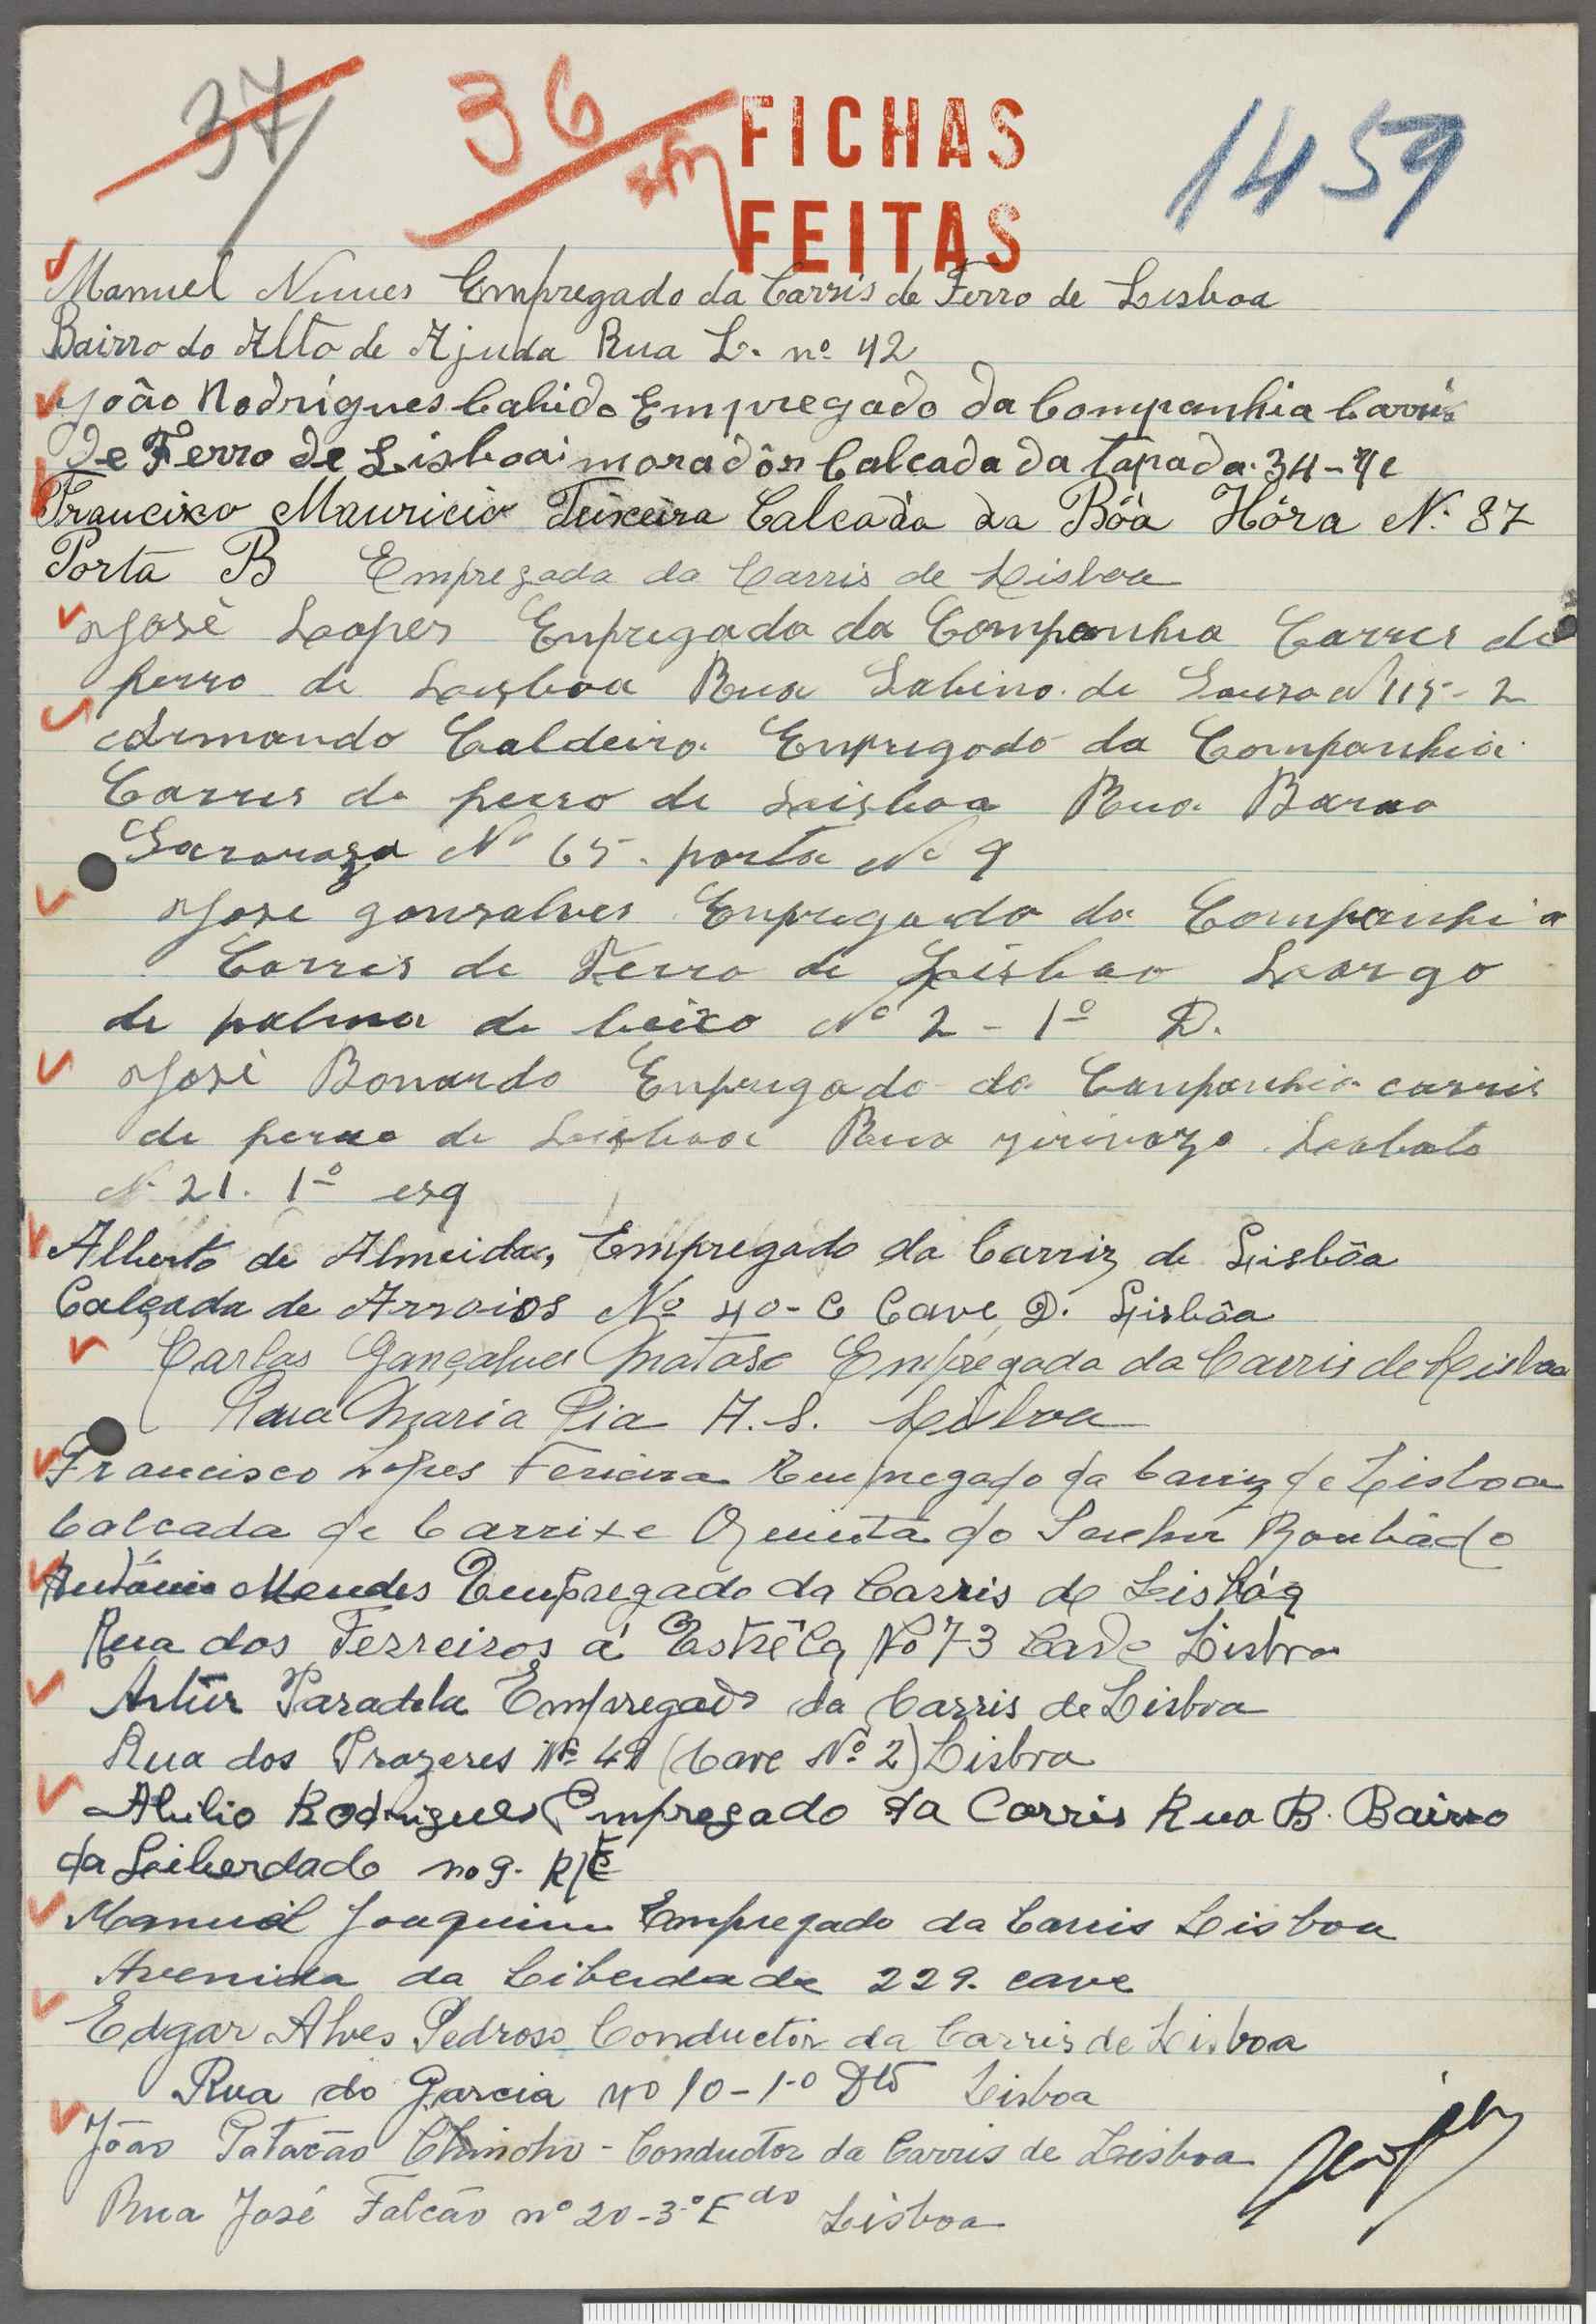 37
36
FICHAS
1459
FEITAS
Manuel Nunes Empregado da Carris de Ferro de Lisboa
Bairro do Alto de Ajuda Rua L. nº 42
João Rodrigues Cahido Empregado da Companhia Carris
de Ferro de Lisboa moradôr Calcada da tapada 34-
Francisco Mauricio Teixeira Calcada da Bôa Hóra N. 87
Porta B Empregada da Carris de Lisboa
José Lopes Enpregado da Companhia Carres de
ferro de Lisboa Rua Sabino de Souza Nº 115-2
Armando Caldeira Enpregado da Companhia
Carres de ferro de Lisboa Rua Barao
Nº 65. porta Nº 9
José gonsalves Enpregado da Companhia
Carres de Ferro de Lisboa Largo
de palma de beixo Nº 2 - 1º D.
José Bonardo Enpregado da Companhia carris
de ferro de Lisboa Rua Lobato
Nº 21. 1º esq
Alberto de Almeida, Empregado da Carriz de Lisbôa
Calçada de Arroios Nº 40-C Cave D. Lisbôa
Carlos Gonçalves Matoso Empregada da Carris de Lisboa
Rua Maria Pia A. S. Lisboa
Francisco Lopes Ferreira Empregado da Carriz de Lisboa
Calcada de Carrixe Quinta do Senhor Roubado
António Mendes Empregado da Carris de Lisbôa
Rua dos Ferreiros á Estrêla Nº 73 Cave Lisboa
Artur Paradela Empregado da Carris de Lisboa
Rua dos Prazeres Nº 49 (Cave Nº 2) Lisboa
Abilio Rodrigues Empregado da Carris Rua B. Bairro
da Liberdade no 9. R/E
Manuel Joaquim Empregado da Carris Lisboa
Avenida da Liberdade 229. cave
Edgar Alves Pedroso Conductôr da Carris de Lisboa
Rua do Garcia nº 10-1º Dtº Lisboa
João Patacão Chincho - Conductor da Carris de Lisboa
Rua José Falcão nº 20-3º Edo Lisboa